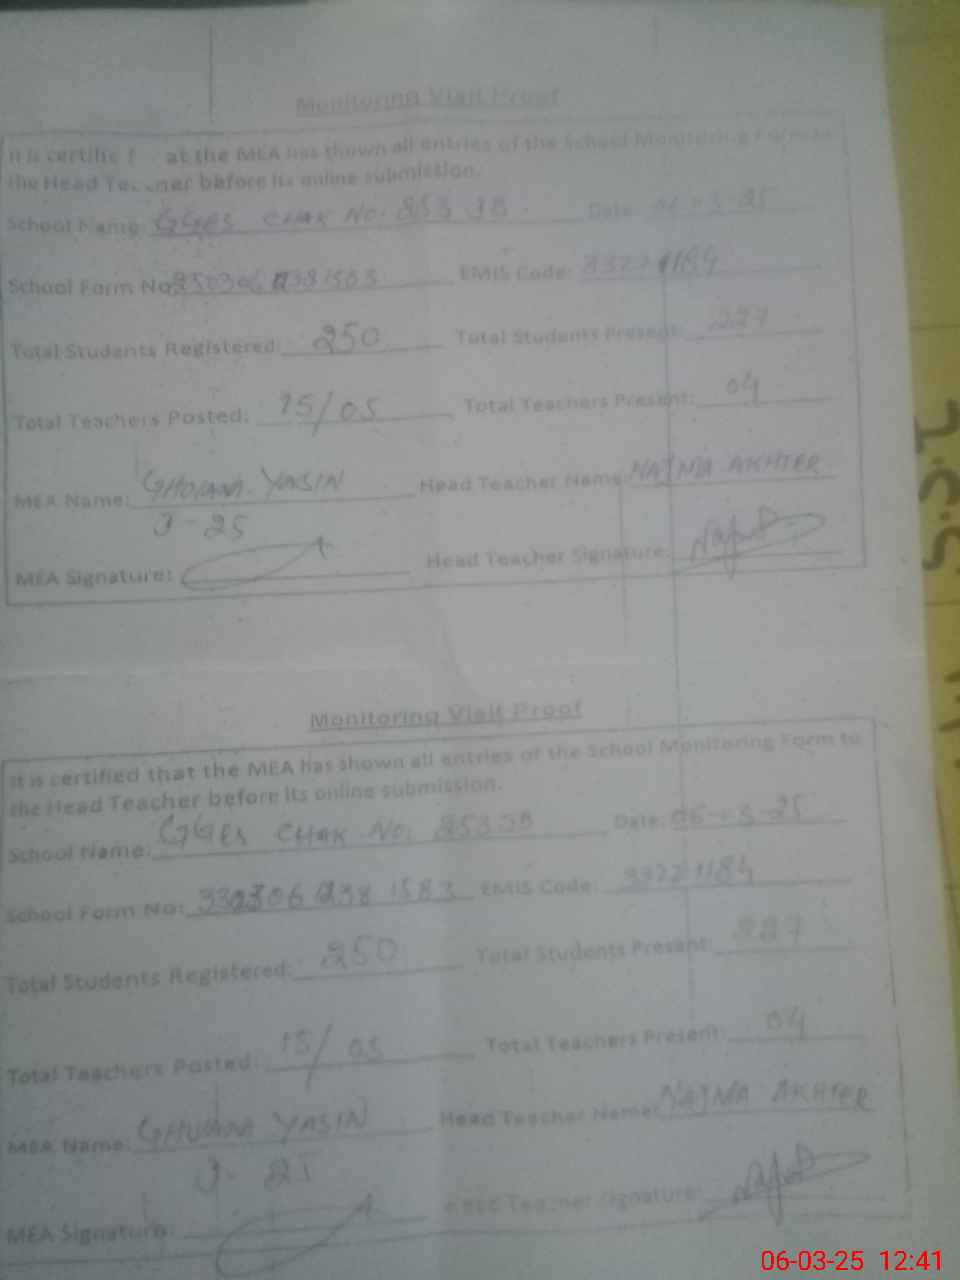 Monitoring Visit Proof
It is certifie at the MEA has shown all entries of the School Monitoring Form to
the Head Te ner before its online submission.
School Name: GGES CHAK No. 253 JB Date: 06-3-25
School Form No: EMIS Code: 33221184
Total Students Registered: 250 Total Students Present: 227
Total Teachers Posted: 15/05 Total Teachers Present: 04
MEA Name: YASIN Head Teacher Name: NAJMA AKHTER
J-25
MEA Signature: Head Teacher Signature:
Monitoring Visit Proof
It is certified that the MEA has shown all entries of the School Monitoring Form to
the Head Teacher before its online submission.
School Name: GGES CHAK No: 253 JB Date: 06-3-25
School Form No: EMIS Code: 33221184
Total Students Registered: 250 Total Students Present: 227
Total Teachers Posted: 15/05 Total Teachers Present: 04
MEA Name: YASIN Head Teacher Name: NAJMA AKHTER
J-25
MEA Signature: Teacher Signature:
06-03-25 12:41